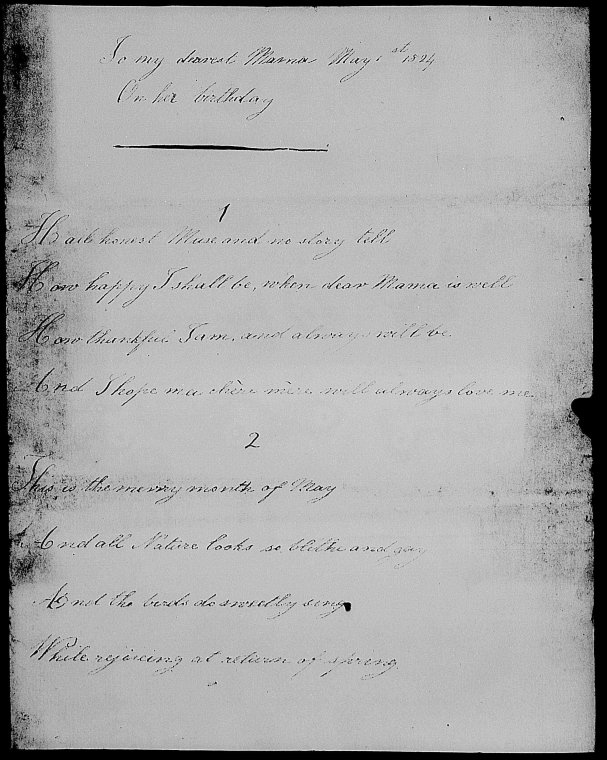 To my dearest Mama May 1st 1824
On her birthday
1
Hail honest Muse and no story tell
How happy I shall be, when dear Mama is well
How thankful I am, and always will be
And I hope ma chère mère will always love me.
2
This is the merry month of May
And all Nature looks so blithe and gay
And the birds do sweetly sing
While rejoicing at return of spring.